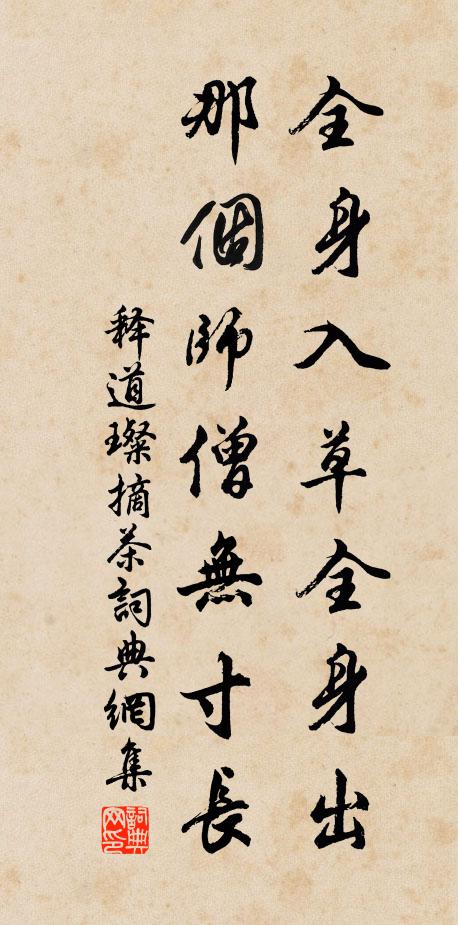 全身入草全身出
那個師僧無寸長
释道璨摘茶詞典網集
詞典网印